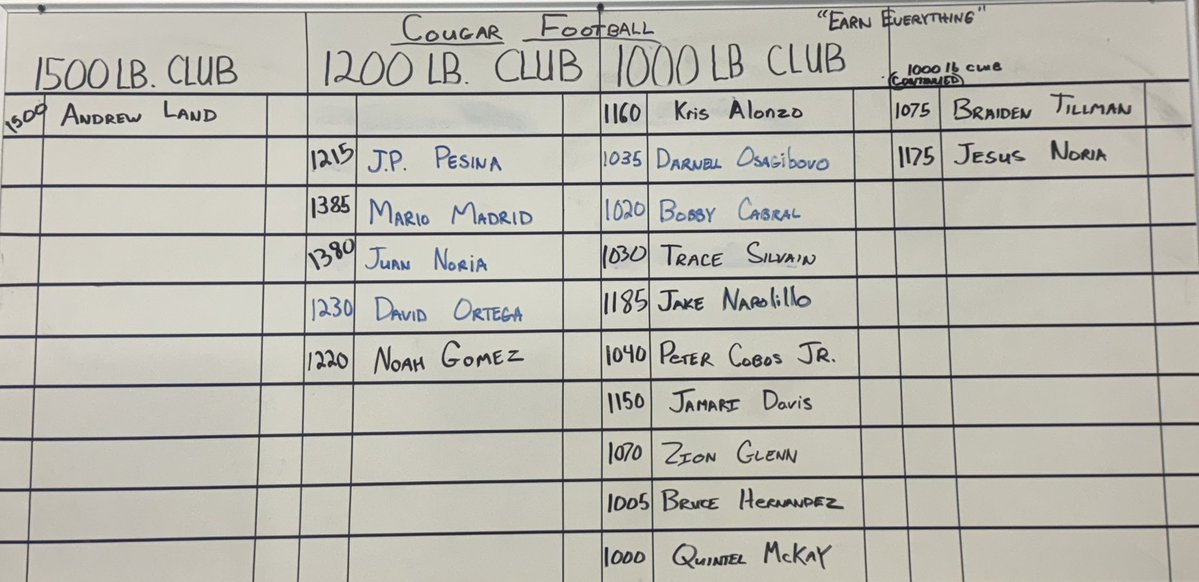 COUGAR FOOTBALL
"EARN EVERYTHING"
1500 LB. CLUB
1500 ANDREW LAND
1200 LB. CLUB
1215 J.P. PESINA
1385 MARIO MADRID
1380 JUAN NORIA
1230 DAVID ORTEGA
1220 NOAH GOMEZ
1000 LB CLUB
1160 Kris Alonzo
1035 DARNELL OSAGIBOVO
1020 BOBBY CABRAL
1030 TRACE SILVAIN
1185 JAKE NAPOLILLO
1040 PETER COBOS JR.
1150 JAMARI Davis
1070 ZION GLENN
1005 BRUCE HERNANDEZ
1000 QUINTEL McKAY
1000 lb CLUB
(CONTINUED)
1075 BRAIDEN TILLMAN
1175 JESUS NORIA